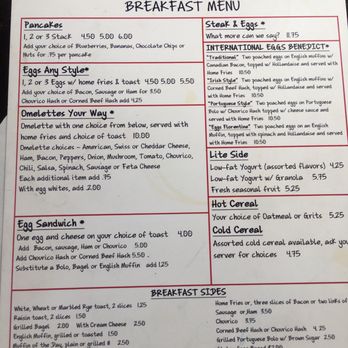 BREAKFAST MENU
Pancakes
1, 2 or 3 Stack 4.50 5.00 6.00
Add your choice of Blueberries, Bananas, Chocolate Chips or
Nuts for .75 per pancake
Eggs Any Style*
1, 2 or 3 Eggs w/ home fries & toast 4.50 5.00 5.50
Add your choice of Bacon, Sausage or Ham for 3.50
Chourico Hash or Corned Beef Hash add 4.25
Omelettes Your Way *
Omelette with one choice from below, served with
home fries and choice of toast 10.00
Omelette choices - American, Swiss or Cheddar Cheese,
Ham, Bacon, Peppers, Onion, Mushroom, Tomato, Chourico,
Chili, Salsa, Spinach, Sausage or Feta Cheese
Each additional item add .75
With egg whites, add 2.00
Egg Sandwich *
One egg and cheese on your choice of toast 4.00
Add Bacon, sausage, Ham or Chourico 5.00
Add Chourico Hash or Corned Beef Hash 5.50
Substitute a Bolo, Bagel or English Muffin add 1.25
Steak & Eggs *
What more can we say? 11.75
INTERNATIONAL EGGS BENEDICT*
"Traditional" Two poached eggs on English muffin w/
Canadian Bacon, topped w/ Hollandaise and served with
Home Fries 10.50
"Irish Style" Two poached eggs on English muffin w/
Corned Beef Hash, topped w/ Hollandaise and served with
Home Fries 10.50
"Portuguese Style" Two poached eggs on Portuguese
Bolo w/ Chourico Hash topped w/ cheese sauce and
served with Home Fries 10.50
"Eggs Florentine" Two poached eggs on an English
Muffin, topped with spinach and Hollandaise and served with
Home Fries 10.50
Lite Side
Low-fat Yogurt (assorted flavors) 4.25
Low-fat Yogurt w/ Granola 5.75
Fresh seasonal fruit 5.25
Hot Cereal
Your choice of Oatmeal or Grits 5.25
Cold Cereal
Assorted cold cereal available, ask you
server for choices 4.75
BREAKFAST SIDES
White, Wheat or Marbled Rye toast, 2 slices 1.25
Raisin toast, 2 slices 1.50
Grilled Bagel 2.00 With Cream Cheese 2.50
English Muffin, grilled or toasted 1.50
Muffin of the Day, plain or grilled 2.50
Home Fries or, three slices of Bacon or two links of
Sausage or Ham 3.50
Chourico 3.75
Corned Beef Hash or Chourico Hash 4.25
Grilled Portuguese Bolo w/ Brown Sugar 2.50